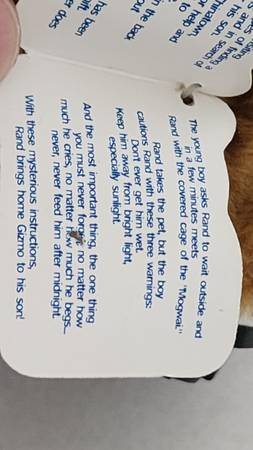 search of
in finding
his son.
Chinatown,
to help and
in the back
has been
The young boy asks Rand to wait outside and
in a few minutes meets
Rand with the covered cage of the "Mogwai."
Rand takes the pet, but the boy
cautions Rand with these three warnings:
Don't ever get him wet.
Keep him away from bright light,
especially sunlight.
And the most important thing, the one thing
you must never forget: no matter how
much he cries, no matter how much he begs...
never, never feed him after midnight.
With these mysterious instructions,
Rand brings home Gizmo to his son!